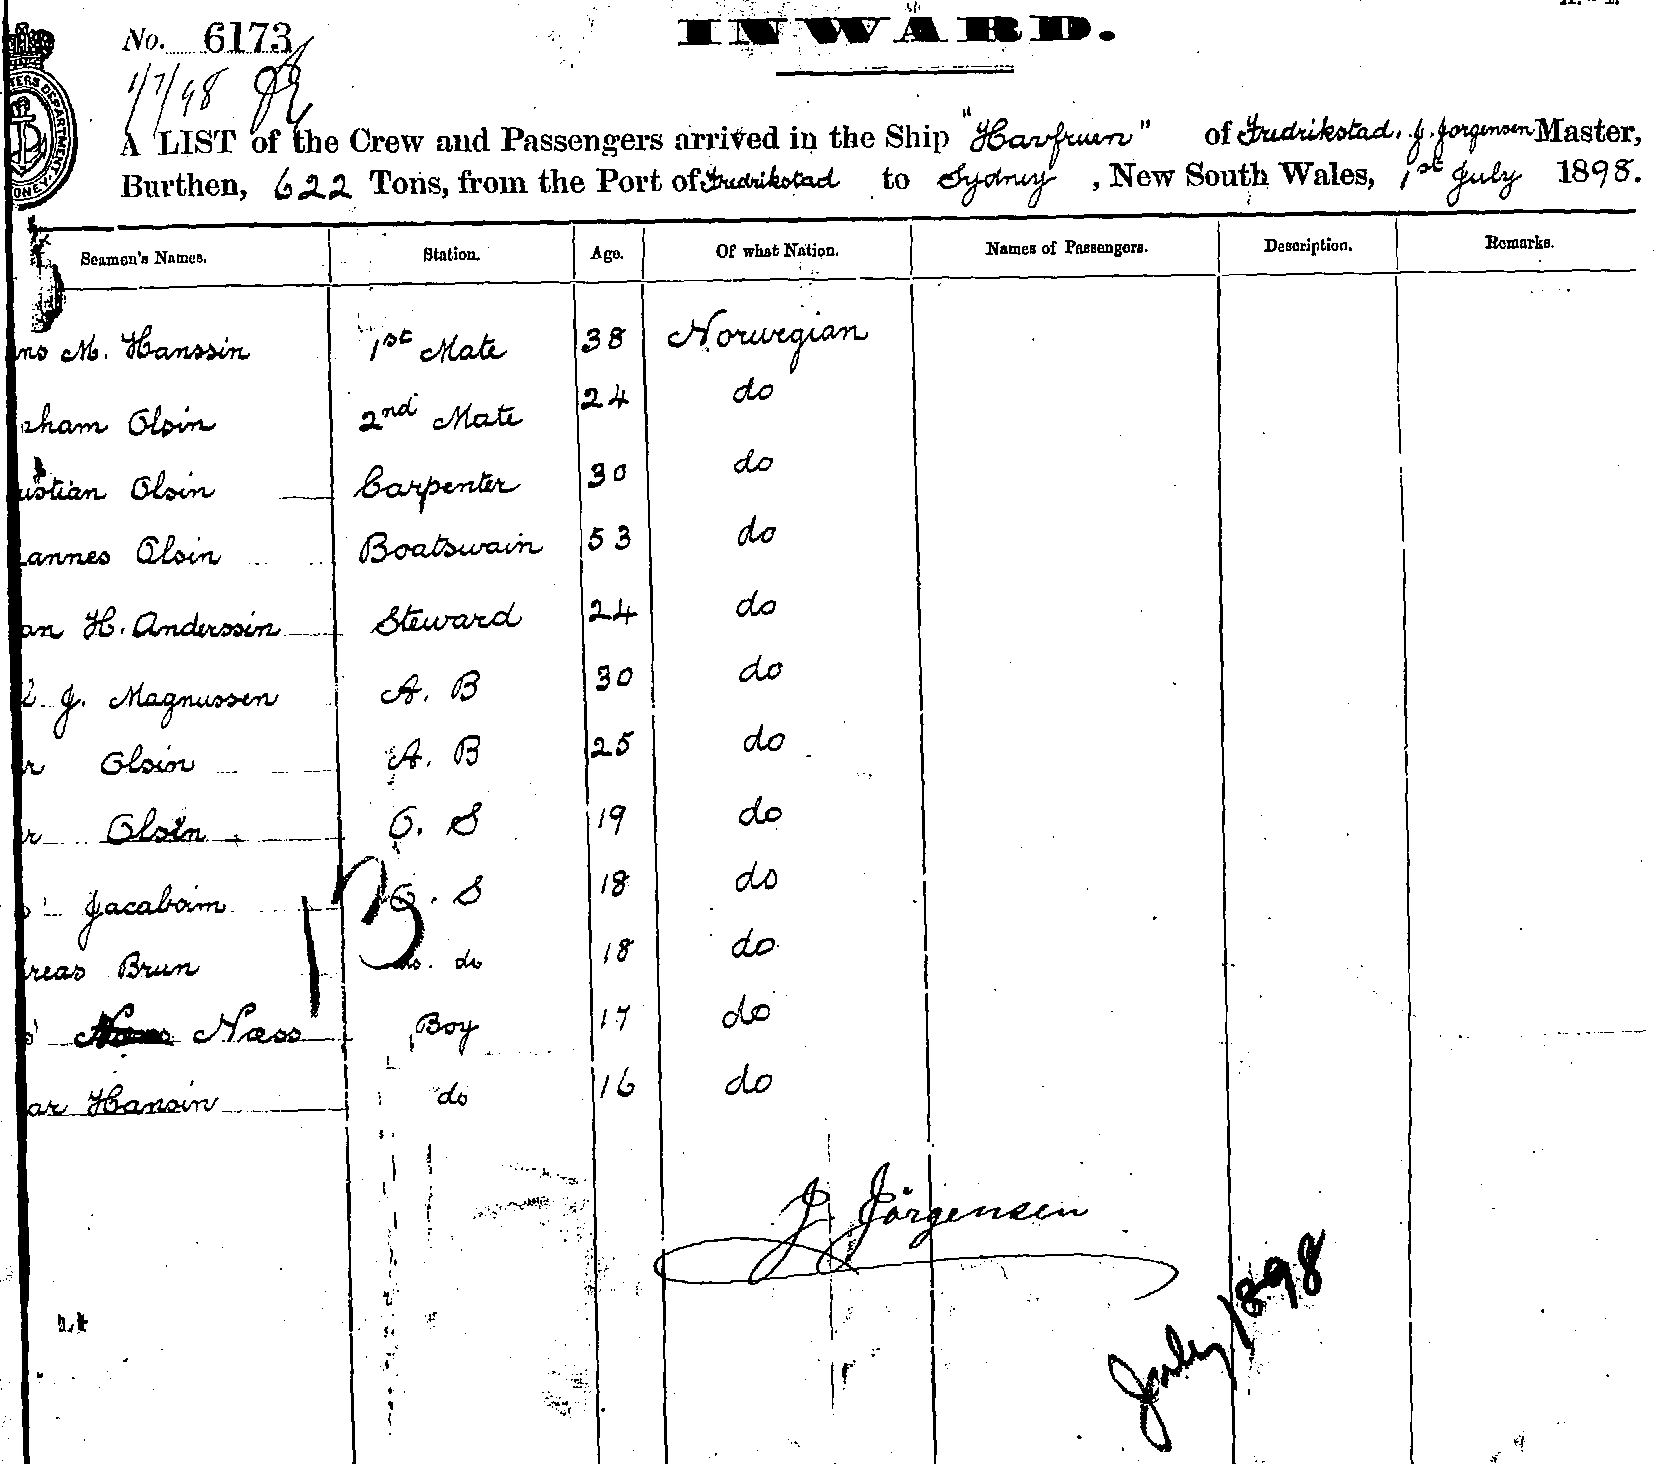 INWARD.
No. 6173
1/7/98
A LIST of the Crew and Passengers arrived in the Ship "Havfruen" of Fredrikstad. J. Jorgensen Master,
Burthen, 622 Tons, from the Port of Fredrikstad to Sydney, New South Wales, 1st July 1898.
Seamen's Names. Station. Age. Of what Nation. Names of Passengers. Description. Remarks.
M. Hanssin 1st Mate 38 Norwegian
Olsin 2nd Mate 24 do
Olsin Carpenter 30 do
annes Olsin Boatswain 53 do
an H. Anderssin Steward 24 do
J. Magnussen A. B 30 do
r Olsin A. B 25 do
r Olsin O. S 19 do
Jacaboim O. S 18 do
reas Brun do. do 18 do
Næss Boy 17 do
ar Hansin do 16 do
13
J. Jörgensen
July 1898